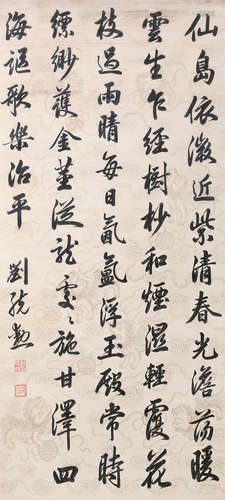 仙島依澂近紫清春光澹蕩暖
雲生乍經樹杪和煙濕輕覆花
枝過雨晴每日氤氳浮玉殿常時
縹緲護金莖從龍處〻施甘澤四
海謳歌樂治平
劉統勳